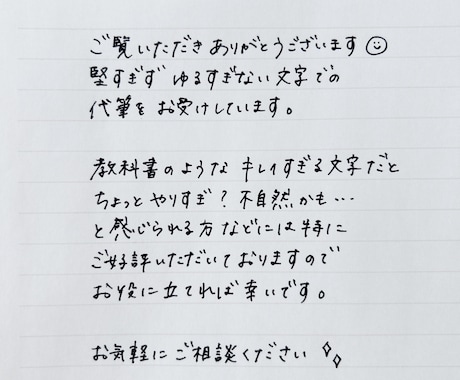 ご覧いただき ありがとうございます☺
堅すぎず ゆるすぎない 文字での
代筆を お受けしています。
教科書のような キレイすぎる文字だと
ちょっと やりすぎ？ 不自然かも…
と感じられる方 などには 特に
ご好評いただいておりますので
お役に立てれば 幸いです。
お気軽に ご相談ください